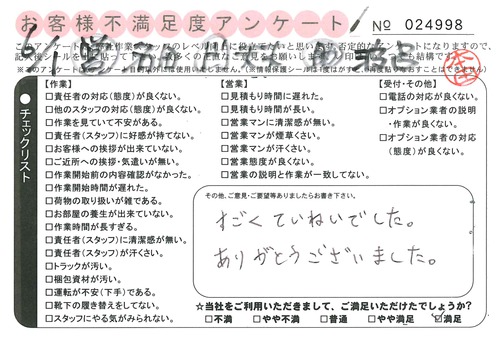 お客様不満足度アンケート
No 024998
チェックリスト
【作業】
□責任者の対応(態度)が良くない。
□他のスタッフの対応(態度)が良くない。
□作業を見ていて不安がある。
□責任者(スタッフ)に好感が持てない。
□お客様への挨拶が出来ていない。
□ご近所への挨拶・気遣いが無い。
□作業開始前の内容確認がなかった。
□作業開始時間が遅れた。
□荷物の取り扱いが雑である。
□お部屋の養生が出来ていない。
□作業時間が長すぎる。
□責任者(スタッフ)に清潔感が無い。
□責任者(スタッフ)が汗くさい。
□トラックが汚い。
□梱包資材が汚い。
□運転が不安(下手)である。
□靴下の履き替えをしてない。
□スタッフにやる気がみられない。
【営業】
□見積もり時間に遅れた。
□見積もり時間が長い。
□営業マンに清潔感が無い。
□営業マンが煙草くさい。
□営業マンが汗くさい。
□営業態度が良くない。
□営業の説明と作業が一致してない。
【受付・その他】
□電話の対応が良くない。
□オプション業者の説明
・作業が良くない。
□オプション業者の対応
(態度)が良くない。
その他、ご意見・ご要望等ありましたらお書き下さい。
すごくていねいでした。
ありがとうございました。
☆当社をご利用いただきまして、ご満足いただけたでしょうか?
□不満 □やや不満 □普通 □やや満足 ☑満足